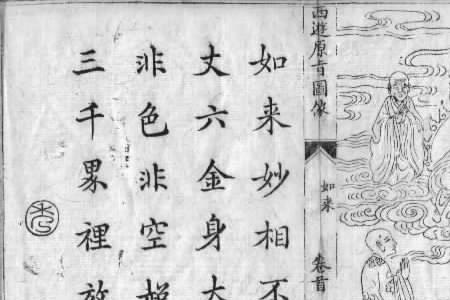 西遊原旨圖像
如来
卷首
如来妙相不
丈六金身大
非色非空超
三千界裡放